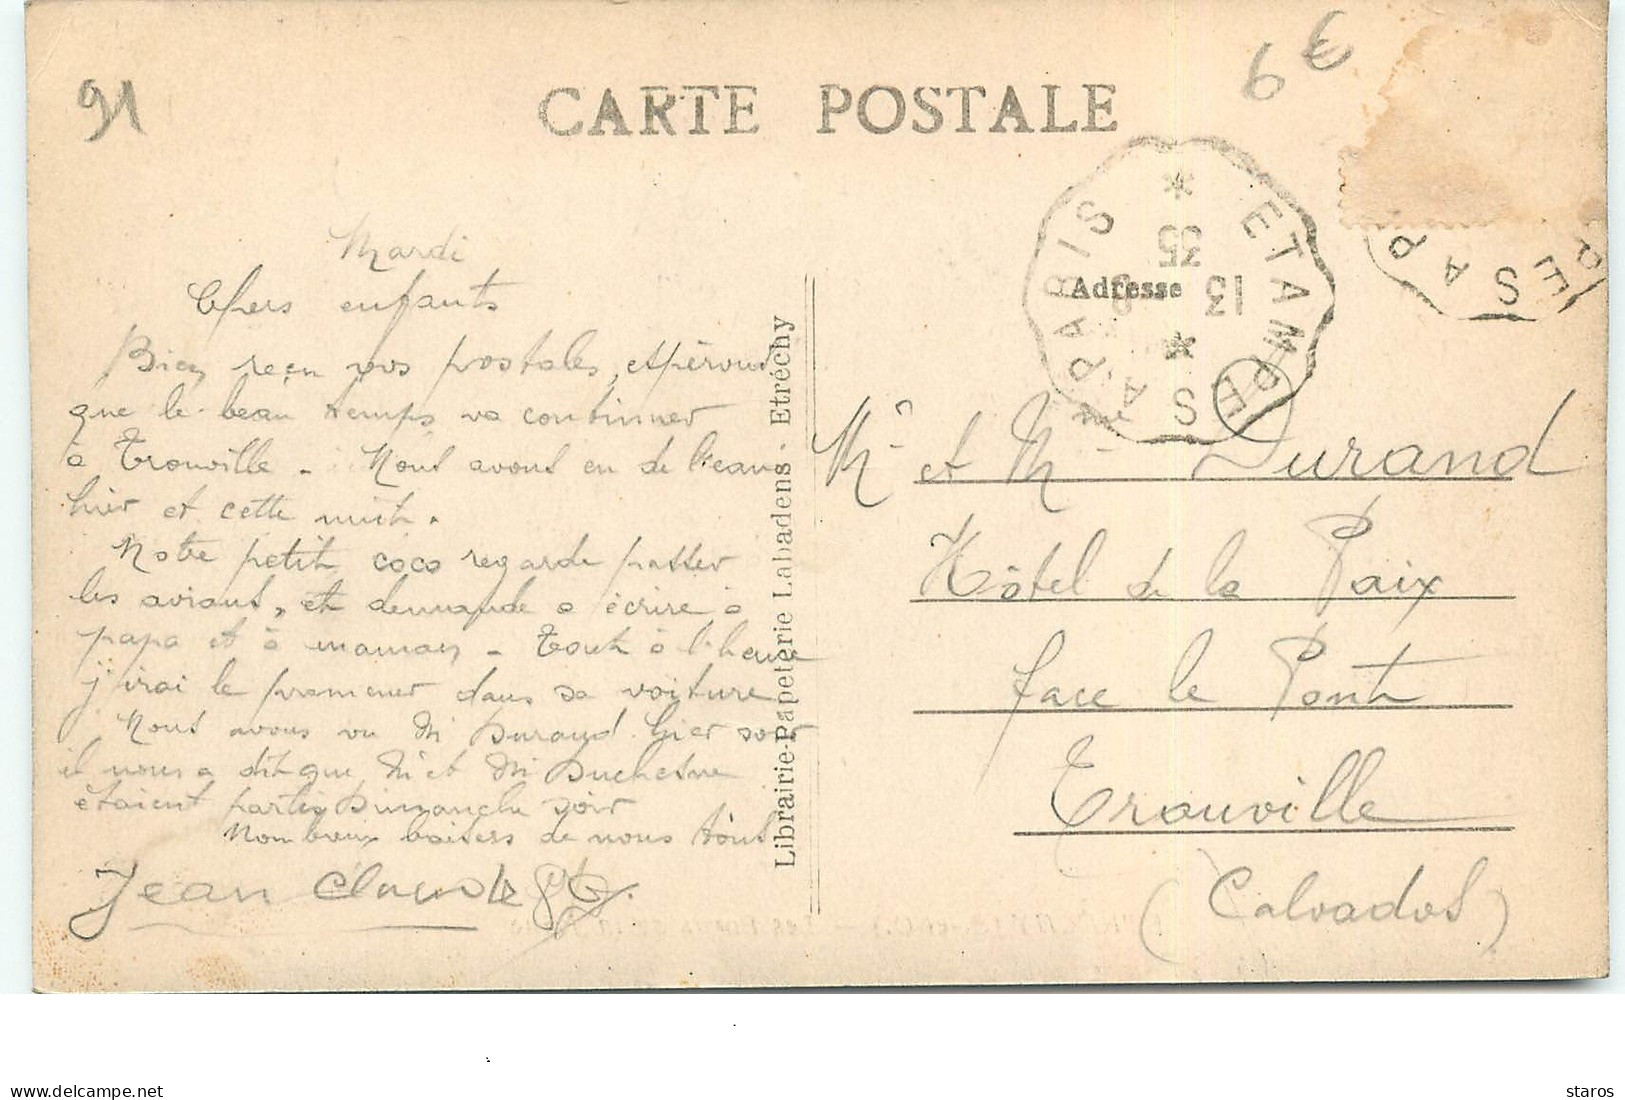 91
6€
CARTE POSTALE
ETAMPES A PARIS
13
35
ES A P
Adresse
Mardi
Chers enfants
Bien reçu vos postales, espérons
que le beau temps va continuer
à Trouville - Nous avons eu de l'eau
hier et cette nuit.
Notre petit coco regarde passer
les avions, et demande a écrire à
papa et à maman - Tout à l'heure
j'irai le promener dans sa voiture
Nous avons vu Mr Durand hier soir
il nous a dit que Mr et Mme Duchesne
étaient partis Dimanche soir
Nombreux baisers de nous tous
Jean Claude
Librairie-Papeterie Labadens - Etréchy
Mr et Me Durand
Hôtel de la Paix
face le Pont
Trouville
(Calvados)
www.delcampe.net
staros